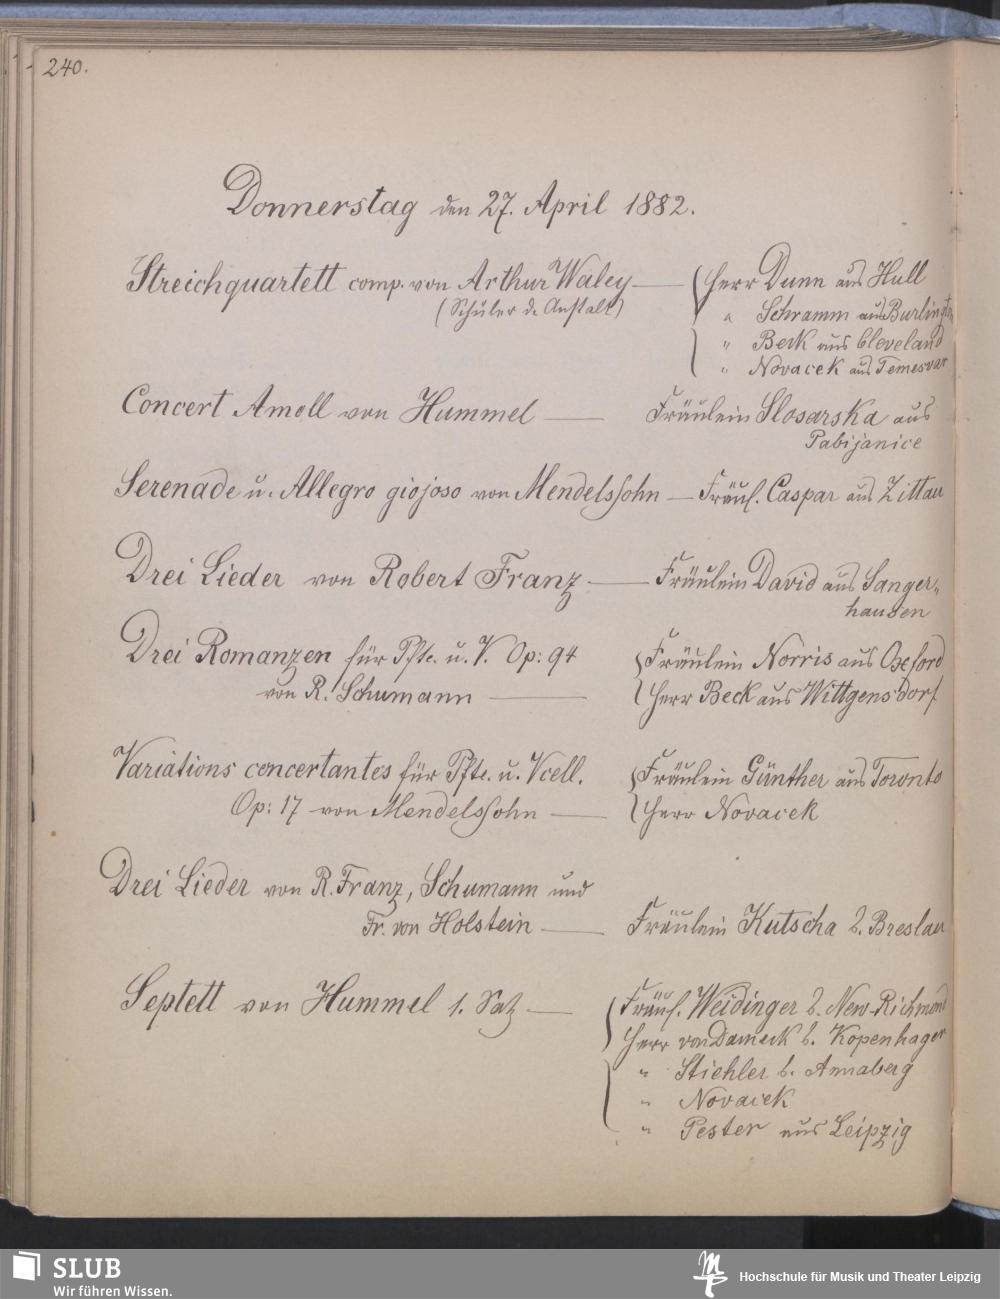 240.
Donnerstag den 27. April 1882.
Streichquartett comp. von Arthur Waley — Herr Dunn aus Hull
(Schüler d. Anstalt) " Schramm aus Burlington
" Beck aus Cleveland
" Novacek aus Temesvar
Concert Amoll von Hummel — Fräulein Slosarska aus
Pabijanice
Serenade u. Allegro giojoso von Mendelssohn — Fräul. Caspar aus Zittau
Drei Lieder von Robert Franz — Fräulein David aus Sanger-
hausen
Drei Romanzen für Pfte. u. V. Op: 94 Fräulein Norris aus Oxford
von R. Schumann — Herr Beck aus Wittgensdorf
Variations concertantes für Pfte. u. Vcell. Fräulein Günther aus Toronto
Op: 17 von Mendelssohn — Herr Novacek
Drei Lieder von R. Franz, Schumann und
Fr. von Holstein — Fräulein Kutscha b. Breslau
Septett von Hummel 1. Satz — Fräul. Weidinger b. New-Richmond
Herr von Dameck b. Kopenhagen
" Stiehler b. Annaberg
" Novacek
" Pester aus Leipzig
SLUB
Wir führen Wissen.
Hochschule für Musik und Theater Leipzig